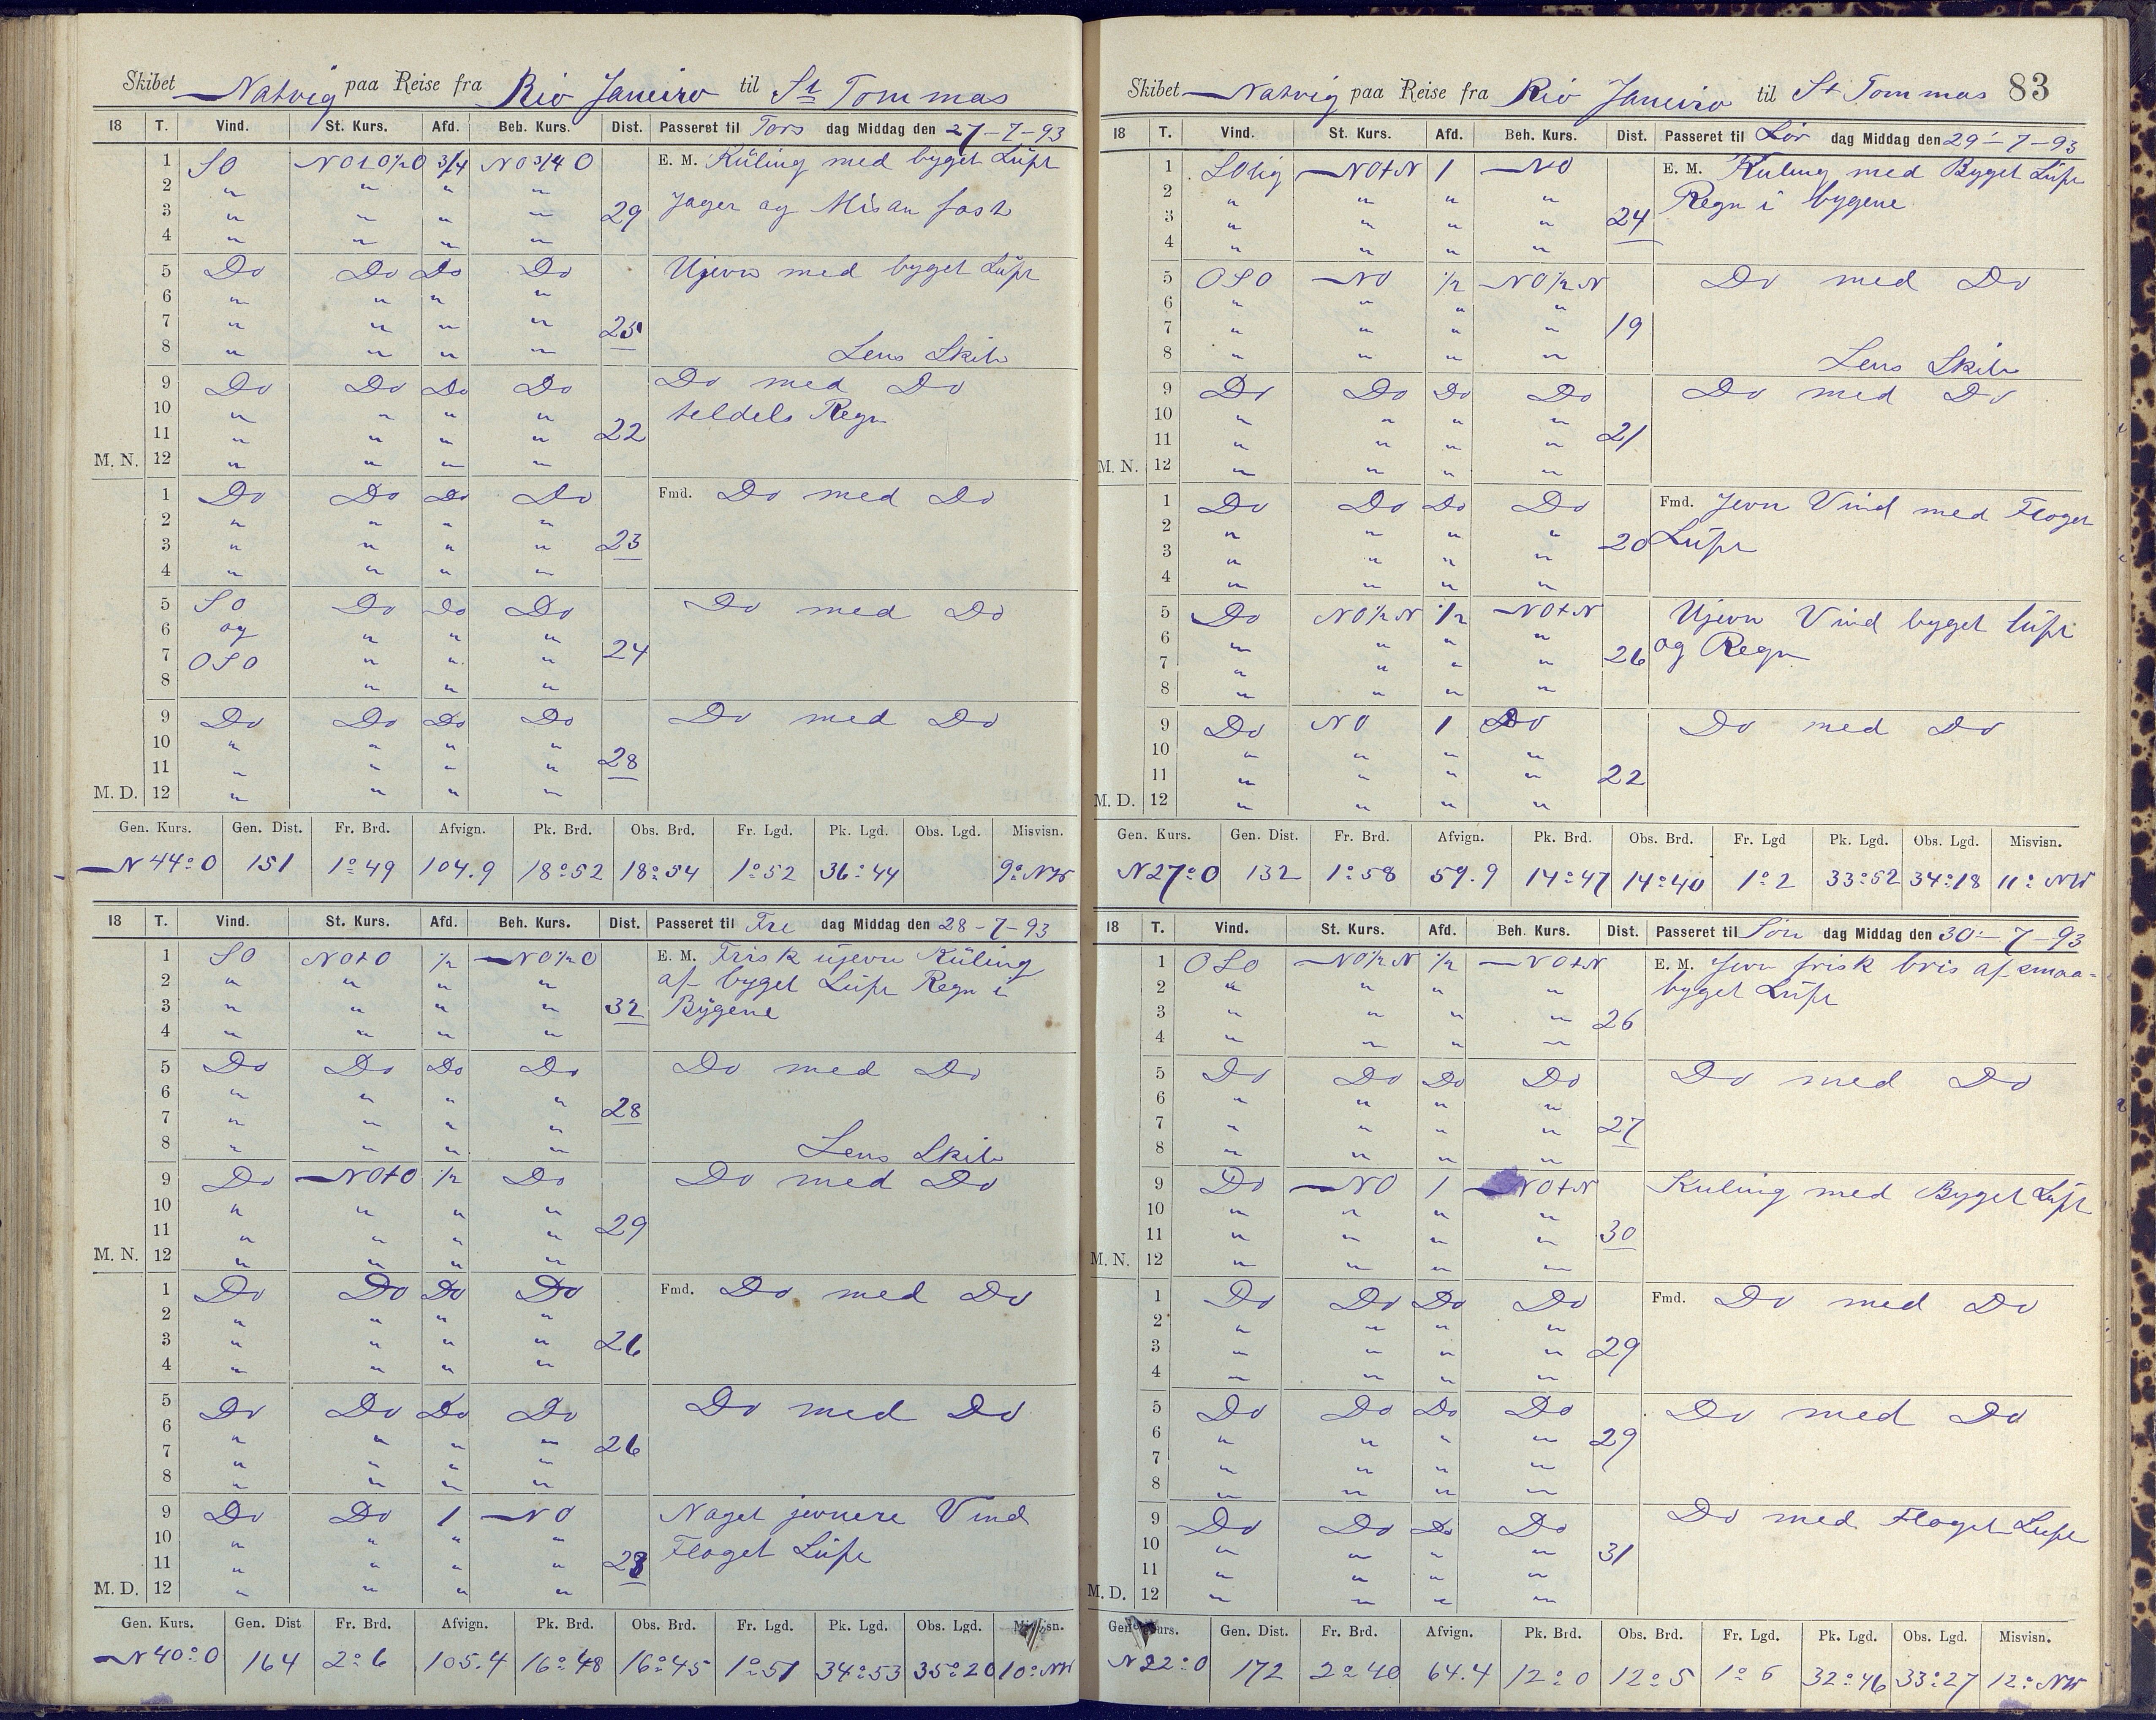 Skibet Natvig paa Reise fra Rio Janeiro til St Tommas
18 T. Vind. St. Kurs. Afd. Beh. Kurs. Dist. Passeret til Tors dag Middag den 27-7-93
1 SO NOtO½O 3/4 NO3/4O E. M. Küling med byget Lüft
2 " " " "
3 " " " " 29 Jager og Misan fast
4 " " " "
5 Do Do Do Do Ujevn med byget Lüft
6 " " " "
7 " " " " 25
8 " " " " Lens Skib
9 Do Do Do Do Do med Do
10 " " " " teldels Regn
11 " " " " 22
M. N. 12 " " " "
1 Do Do Do Do Fmd. Do med Do
2 " " " "
3 " " " " 23
4 " " " "
5 SO Do Do Do Do med Do
6 og " " "
7 OSO " " " 24
8 " " "
9 Do Do Do Do Do med Do
10 " " " "
11 " " " " 28
M. D. 12 " " " "
Gen. Kurs. Gen. Dist. Fr. Brd. Afvign. Pk. Brd. Obs. Brd. Fr. Lgd. Pk. Lgd. Obs. Lgd. Misvisn.
N 44° O 151 1°49 104.9 18°52 18°54 1°52 36°44 9° NW
18 T. Vind. St. Kurs. Afd. Beh. Kurs. Dist. Passeret til Fre dag Middag den 28-7-93
1 SO NOtO ½ NO½O E. M. Frisk ujevn Küling
2 " " " " af byget Lüft Regn i
3 " " " " 32 Bygene
4 " " " "
5 Do Do Do Do Do med Do
6 " " " "
7 " " " " 28
8 " " " " Lens Skib
9 Do NOtO ½ Do Do med Do
10 " " " "
11 " " " " 29
M. N. 12 " " " "
1 Do Do Do Do Fmd. Do med Do
2 " " " "
3 " " " " 26
4 " " " "
5 Do Do Do Do Do med Do
6 " " " " 26
7 " " " "
8 " " " "
9 Do Do 1 NO Naget jevnere Vind
10 " " " " Floget Lüft
11 " " " " 23
M. D. 12 " " " "
Gen. Kurs. Gen. Dist Fr. Brd. Afvign. Pk. Brd. Obs. Brd. Fr. Lgd. Pk. Lgd. Obs. Lgd. Misvisn.
N 40° O 164 2°6 105.4 16°48 16°45 1°51 34°53 35°20 10° NW
Skibet Natvig paa Reise fra Rio Janeiro til St Tommas 83
18 T. Vind. St. Kurs. Afd. Beh. Kurs. Dist. Passeret til Lör dag Middag den 29-7-93
1 SOlig NOtN 1 NO E. M. Kuling med Byget Lüft
2 " " " " Regn i bygene
3 " " " " 24
4 " " " "
5 OSO NO ½ NO½N Do med Do
6 " " " "
7 " " " " 19
8 " " " " Lens Skib
9 Do Do Do Do Do med Do
10 " " " "
11 " " " " 21
M. N. 12 " " " "
1 Do Do Do Do Fmd. Jevn Vind med Floget
2 " " " " Lüft
3 " " " " 20
4 " " " "
5 Do NO½N ½ NOtN Ujevn Vind byget lüft
6 " " " " og Regn
7 " " " " 26
8 " " " "
9 Do NO 1 Do Do med Do
10 " " " "
11 " " " " 22
M. D. 12 " " " "
Gen. Kurs. Gen. Dist. Fr. Brd. Afvign. Pk. Brd. Obs. Brd. Fr. Lgd Pk. Lgd. Obs. Lgd. Misvisn.
N 27° O 132 1°58 59.9 14°47 14°40 1°2 33°52 34°18 11° NW
18 T. Vind. St. Kurs. Afd. Beh. Kurs. Dist. Passeret til Sön dag Middag den 30-7-93
1 OSO NO½N ½ NOtN E. M. Jevn frisk bris af smaa-
2 " " " " byget Lüft
3 " " " " 26
4 " " " "
5 Do Do Do Do Do med Do
6 " " " "
7 " " " " 27
8 " " " "
9 Do NO 1 NOtN Kuling med Byget Lüft
10 " " " "
11 " " " " 30
M. N. 12 " " " "
1 Do Do Do Do Fmd. Do med Do
2 " " " "
3 " " " " 29
4 " " " "
5 Do Do Do Do Do med Do
6 " " " " 29
7 " " " "
8 " " " "
9 Do Do Do Do Do med Floget Lüft
10 " " " " 31
11 " " " "
M. D. 12 " " " "
Gen. Kurs. Gen. Dist. Fr. Brd. Afvign. Pk. Brd. Obs. Brd. Fr. Lgd. Pk. Lgd. Obs. Lgd. Misvisn.
N 22° O 172 2°40 64.4 12°0 12°5 1°6 32°46 33°27 12° NW